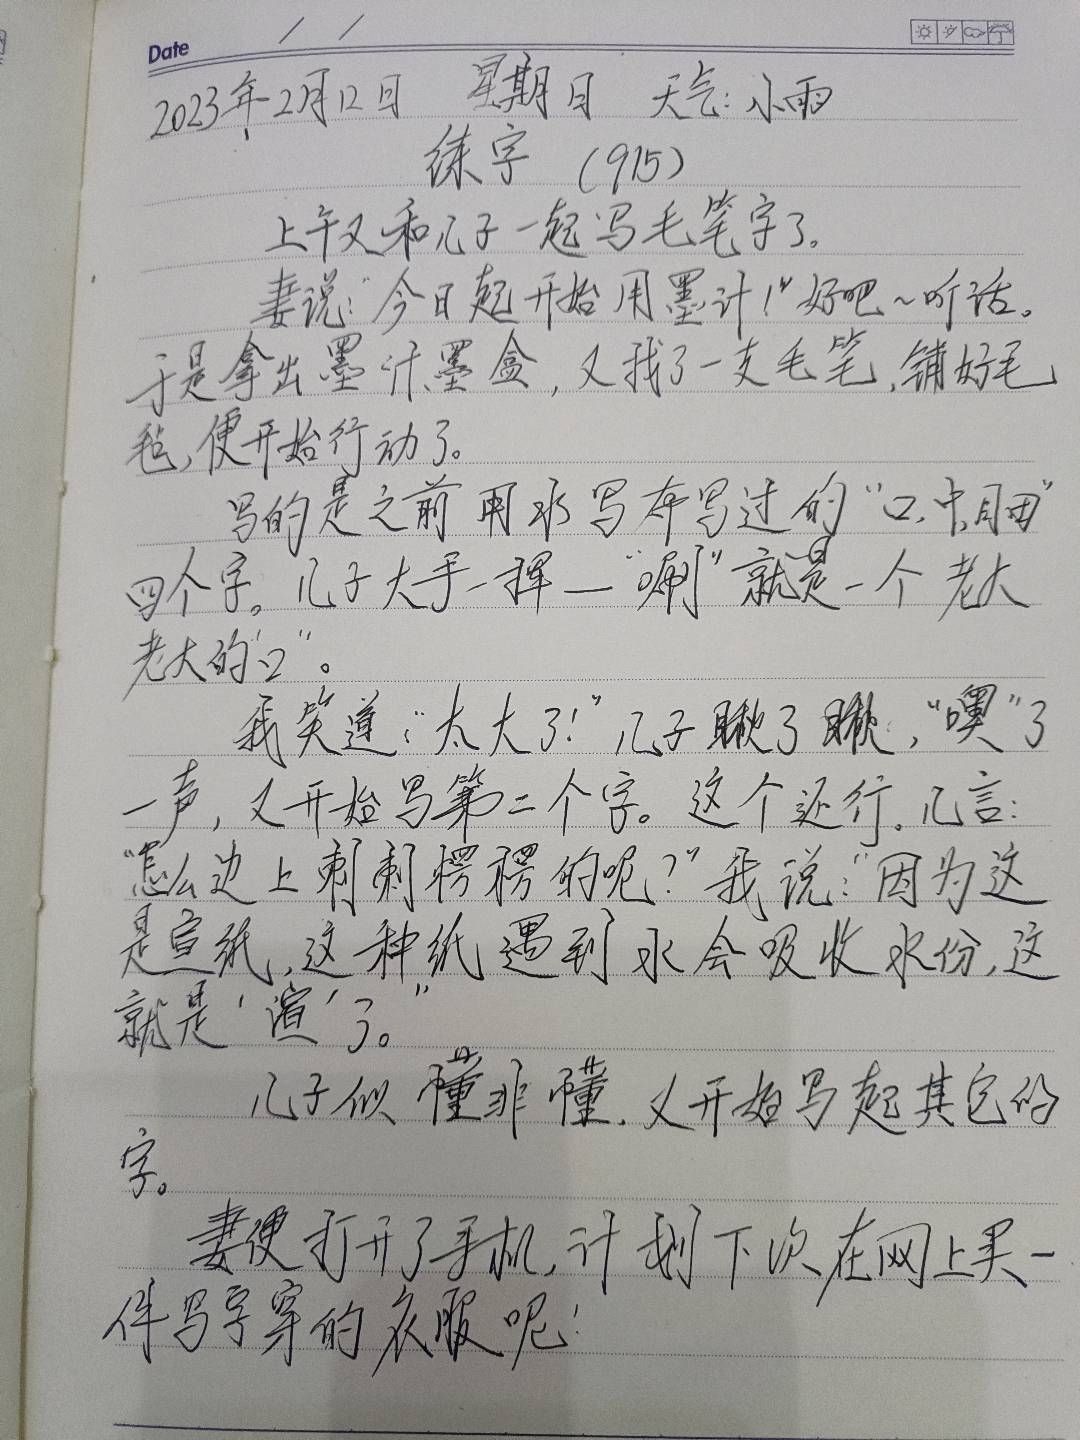 Date / /
2023年2月12日 星期日 天气:小雨
练字 (915)
上午又和儿子一起写毛笔字了。
妻说:“今日起开始用墨汁!”好吧~听话。
于是拿出墨汁、墨盒,又找了一支毛笔,铺好毛
毡,便开始行动了。
写的是之前用水写布写过的“口、中、月、田”
四个字。儿子大手一挥—“唰”就是一个老大
老大的“口”。
我笑道:“太大了!”儿子瞅了瞅,“噢”了
一声,又开始写第二个字。这个还行。儿言:
“怎么边上刺刺楞楞的呢?”我说:“因为这
是宣纸,这种纸遇到水会吸收水份,这
就是‘渲’了。”
儿子似懂非懂,又开始写起其它的
字。
妻便打开了手机,计划下次在网上买一
件写字穿的衣服呢!